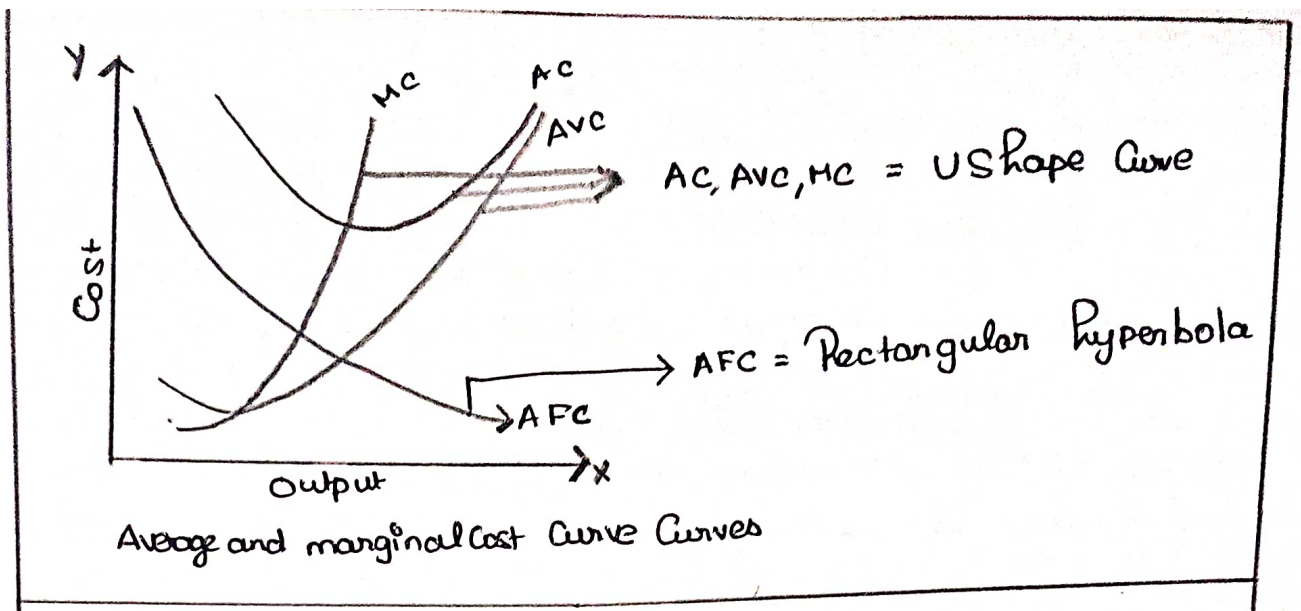 Y
MC
AC
AVC
AC, AVC, MC = U Shape Curve
Cost
AFC = Rectangular hyperbola
AFC
X
Output
Average and marginal Cost Curve Curves